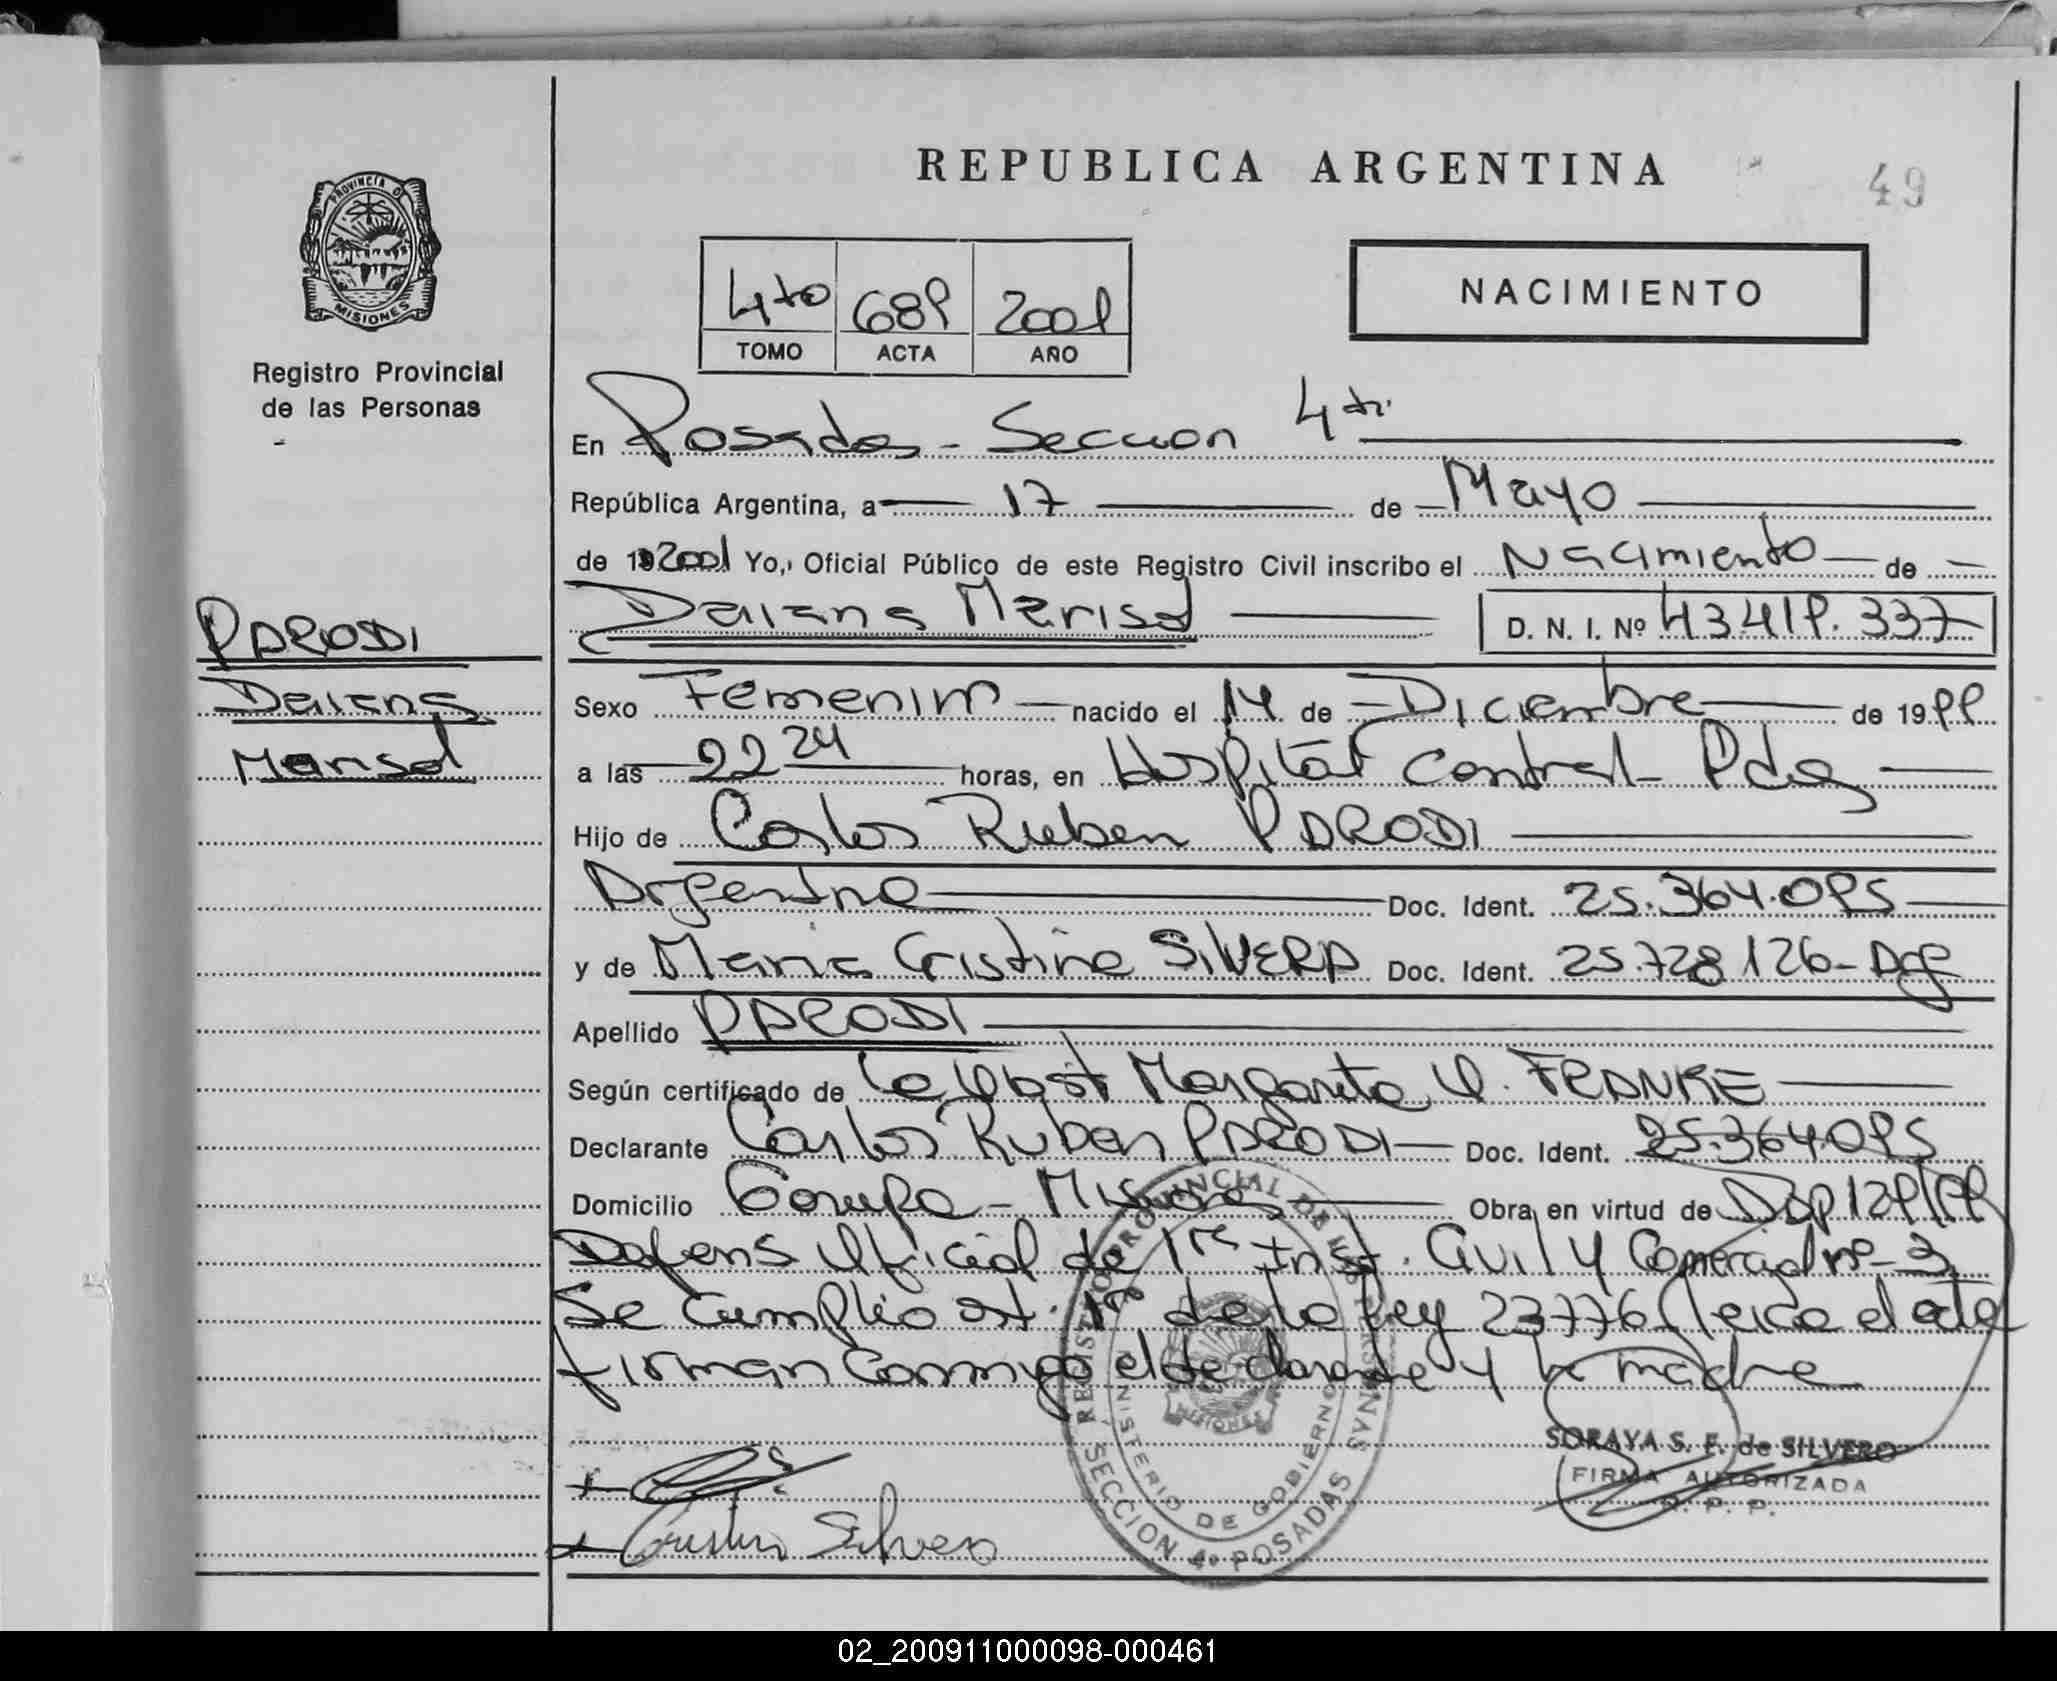 REPUBLICA ARGENTINA
49
PROVINCIA DE
MISIONES
Registro Provincial
de las Personas
4to 689 2001
TOMO ACTA AÑO
NACIMIENTO
En Posadas - Seccion 4ta
República Argentina, a 17 de Mayo
de 19 2001 Yo, Oficial Público de este Registro Civil inscribo el Nacimiento de
Daiana Marisol D. N. I. Nº 43.419.337
PARODI
Daiana
Marisol
Sexo Femenino nacido el 14 de Diciembre de 1999
a las 22 24 horas, en Hospital Central - Pdas
Hijo de Carlos Ruben PARODI
Argentino Doc. Ident. 25.364.095
y de Maria Cristina SILVERA Doc. Ident. 25.728.126 - Arg
Apellido PARODI
Según certificado de la Obst Margarita FRANKE
Declarante Carlos Ruben PARODI Doc. Ident. 25.364.095
Domicilio Garupa - Misiones Obra en virtud de
Oficial de 1ra Inst. Civil y Comercial nº 3
Se Cumplio art. 1º de la Ley 23776 Leida el acta
firman Conmigo el declarante y la madre
REGISTRO PROVINCIAL DE LAS PERSONAS
MINISTERIO DE GOBIERNO
MISIONES
SECCION 4º POSADAS
SORAYA S. F. de SILVERO
FIRMA AUTORIZADA
R. P. P.
Cristina Silvera
02_200911000098-000461